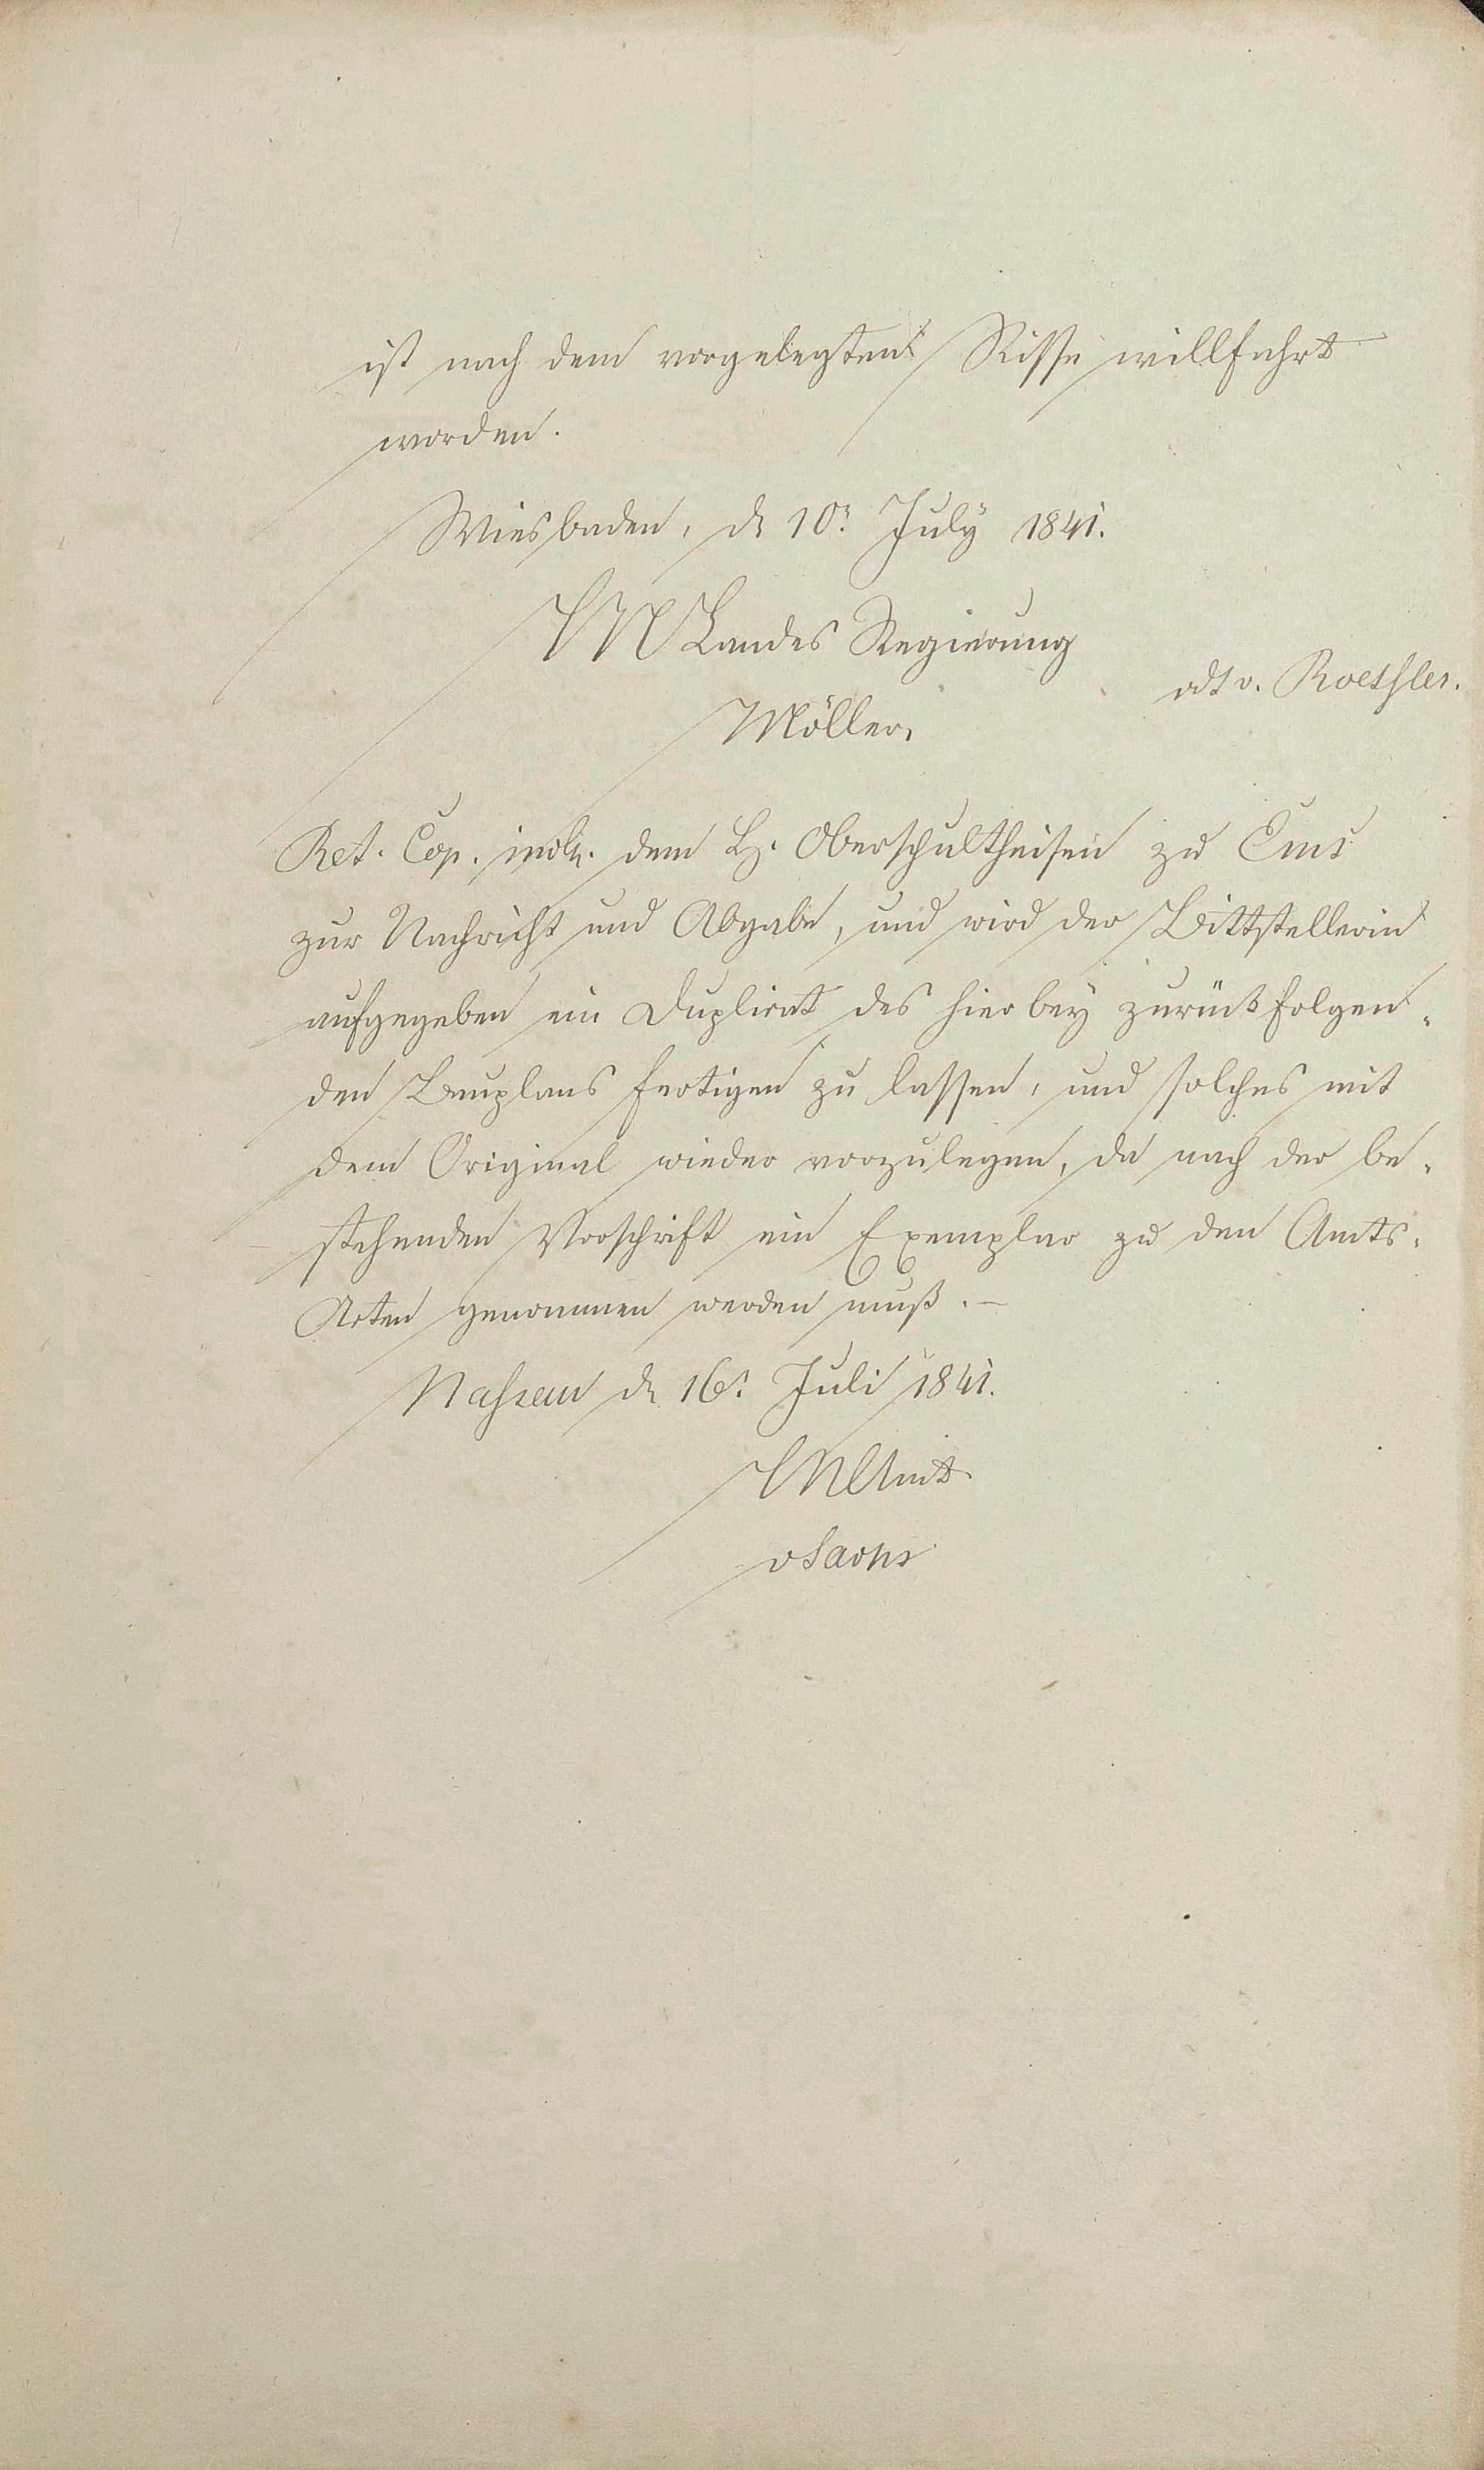 ist nach dem vorgelegten Risse willfahrt
worden.
Wiesbaden, d 10r July 1841.
HN Landes Regierung
vdt v. Roeßler.
Möller,
Ret. Cop. dem H. Oberschultheisen zu Ems
zur Nachricht und Abgabe, und wird der Bittstellerin
aufgegeben ein Duplicat des hierbey zurückfolgen-
den Bauplans fertigen zu lassen, und solches mit
dem Original wieder vorzulegen, da nach der be-
stehenden Vorschrift ein Exemplar zu den Amts-
Acten genommen werden muß. —
Nassau d 16r Juli 1841.
HN Amt